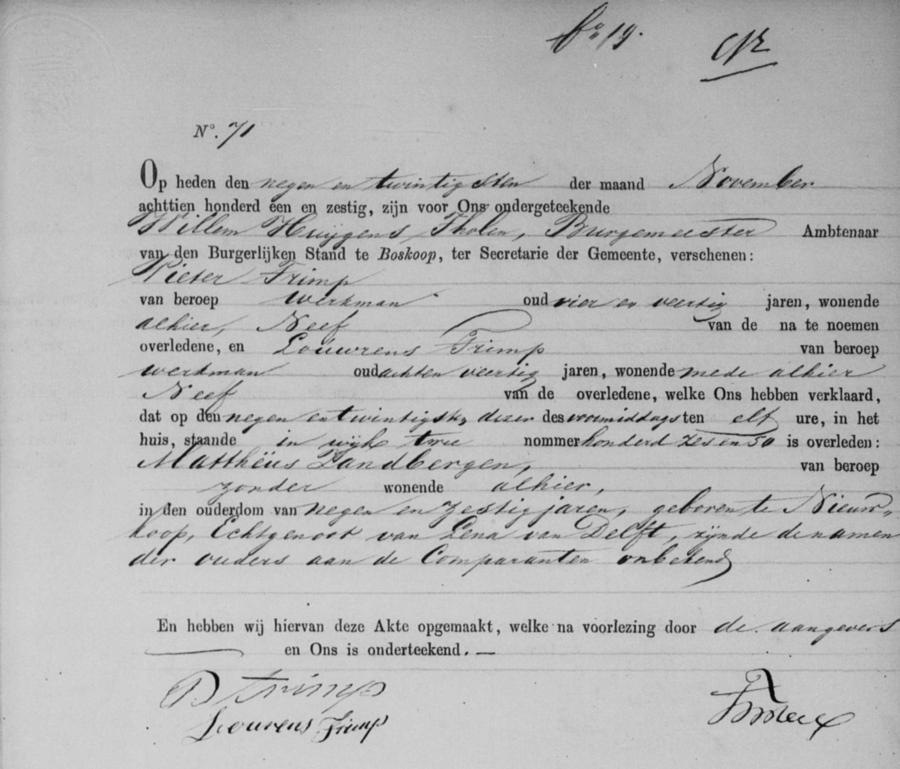 19.
No. 71
Op heden den negen en twintigsten der maand November
achttien honderd een en zestig, zijn voor Ons ondergeteekende
Willem Huijgens Tholen, Burgemeester Ambtenaar
van den Burgerlijken Stand te Boskoop, ter Secretarie der Gemeente, verschenen:
Pieter Trimp
van beroep werkman oud vier en veertig jaren, wonende
alhier, Neef van de na te noemen
overledene, en Louwrens Trimp van beroep
werkman oud acht en veertig jaren, wonende mede alhier
Neef van de overledene, welke Ons hebben verklaard,
dat op den negen en twintigste dezer des voormiddags ten elf ure, in het
huis, staande in wijk twee nommer honderd zes en 50 is overleden:
Matthëus Zandbergen, van beroep
zonder wonende alhier,
in den ouderdom van negen en zestig jaren, geboren te Nieuw-
koop, Echtgenoot van Lena van Delft, zijnde de namen
der ouders aan de Comparanten onbekend
En hebben wij hiervan deze Akte opgemaakt, welke na voorlezing door de aangevers
en Ons is onderteekend. —
P Trimp
Louwrens Trimp
Tholen